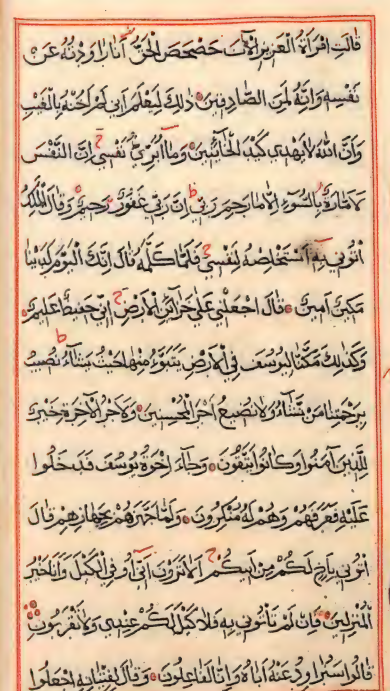 قَالَتِ امْرَأَةُ الْعَزِيزِ الْآنَ حَصْحَصَ الْحَقُّ أَنَا رَاوَدْتُهُ عَنْ
نَفْسِهِ وَإِنَّهُ لَمِنَ الصَّادِقِينَ ذَلِكَ لِيَعْلَمَ أَنِّي لَمْ أَخُنْهُ بِالْغَيْبِ
وَأَنَّ اللَّهَ لَا يَهْدِي كَيْدَ الْخَائِنِينَ وَمَا أُبَرِّئُ نَفْسِي إِنَّ النَّفْسَ
لَأَمَّارَةٌ بِالسُّوءِ إِلَّا مَا رَحِمَ رَبِّي إِنَّ رَبِّي غَفُورٌ رَحِيمٌ وَقَالَ الْمَلِكُ
ائْتُونِي بِهِ أَسْتَخْلِصْهُ لِنَفْسِي فَلَمَّا كَلَّمَهُ قَالَ إِنَّكَ الْيَوْمَ لَدَيْنَا
مَكِينٌ أَمِينٌ قَالَ اجْعَلْنِي عَلَى خَزَائِنِ الْأَرْضِ إِنِّي حَفِيظٌ عَلِيمٌ
وَكَذَلِكَ مَكَّنَّا لِيُوسُفَ فِي الْأَرْضِ يَتَبَوَّءُ مِنْهَا حَيْثُ يَشَاءُ نُصِيبُ
بِرَحْمَتِنَا مَنْ نَشَاءُ وَلَا نُضِيعُ أَجْرَ الْمُحْسِنِينَ وَلَأَجْرُ الْآخِرَةِ خَيْرٌ
لِلَّذِينَ آمَنُوا وَكَانُوا يَتَّقُونَ وَجَاءَ إِخْوَةُ يُوسُفَ فَدَخَلُوا
عَلَيْهِ فَعَرَفَهُمْ وَهُمْ لَهُ مُنْكِرُونَ وَلَمَّا جَهَّزَهُمْ بِجَهَازِهِمْ قَالَ
ائْتُونِي بِأَخٍ لَكُمْ مِنْ أَبِيكُمْ أَلَا تَرَوْنَ أَنِّي أُوفِي الْكَيْلَ وَأَنَا خَيْرُ
الْمُنْزِلِينَ فَإِنْ لَمْ تَأْتُونِي بِهِ فَلَا كَيْلَ لَكُمْ عِنْدِي وَلَا تَقْرَبُونِ
قَالُوا سَنُرَاوِدُ عَنْهُ أَبَاهُ وَإِنَّا لَفَاعِلُونَ وَقَالَ لِفِتْيَانِهِ اجْعَلُوا